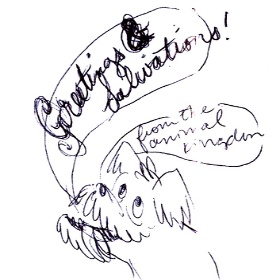 Greetings &
Salivations!
from the
animal
kingdom